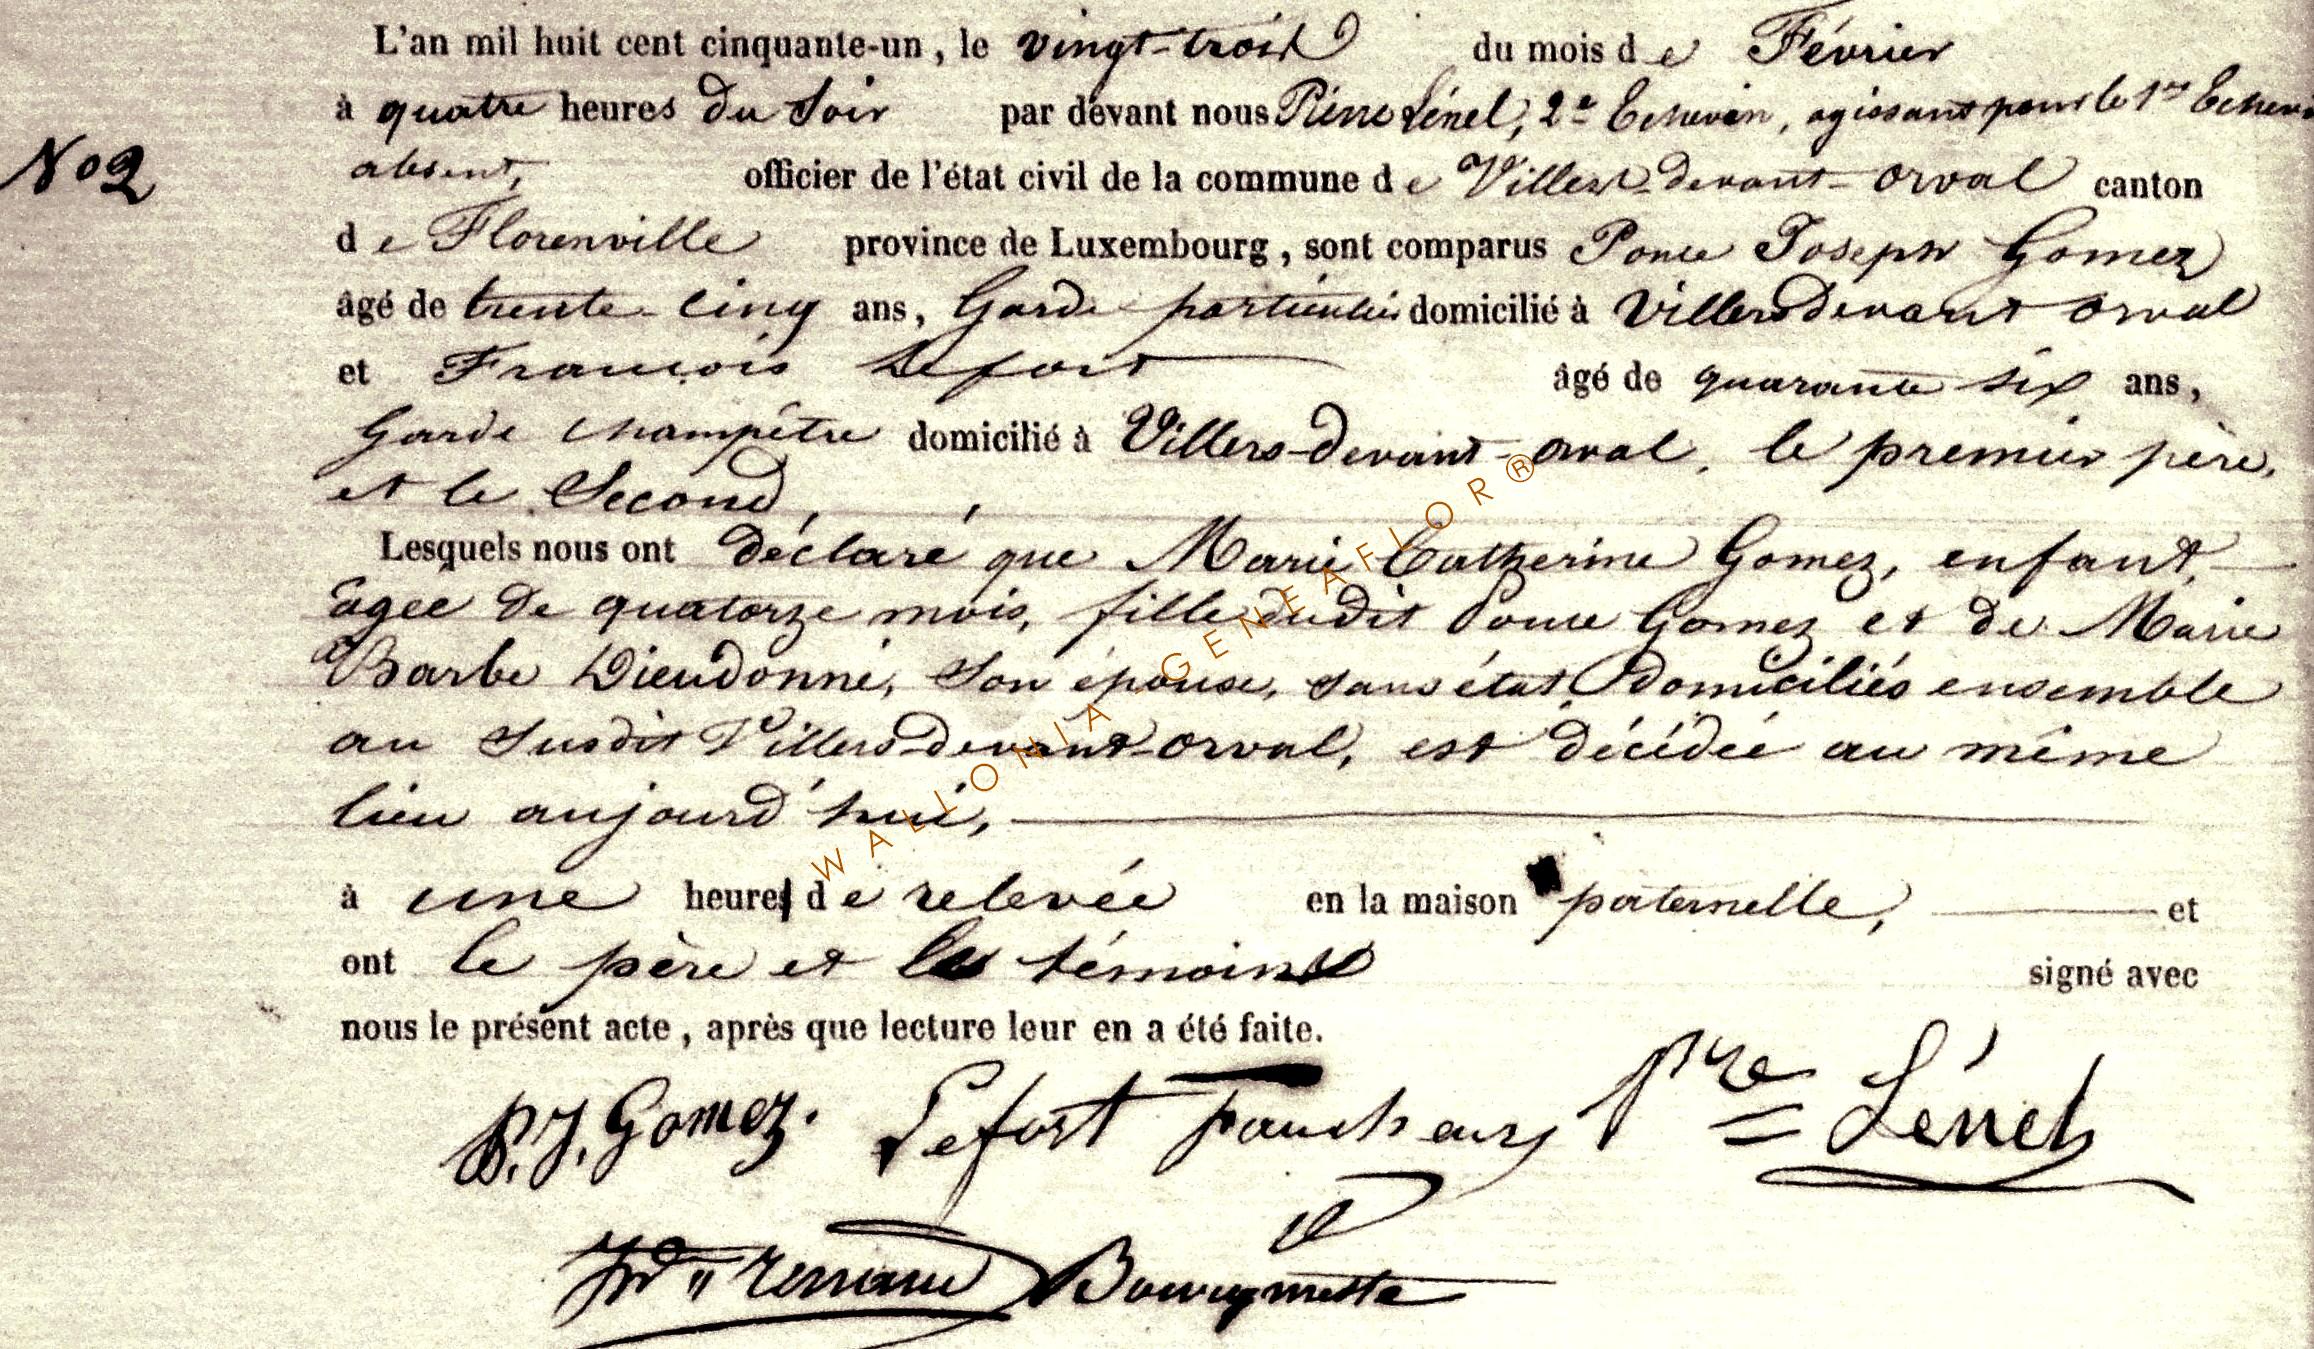 L'an mil huit cent cinquante-un, le vingt-trois du mois de Février
à quatre heures du Soir par devant nous Pierre Lénel, 2e Echevin, agissant pour le 1er Echevin
No 2
absent, officier de l'état civil de la commune de Villers-devant-Orval canton
de Florenville province de Luxembourg, sont comparus Ponce Joseph Gomez
âgé de trente-cinq ans, Garde particulier domicilié à Villers devant Orval
et François Lefort âgé de quarante six ans,
Garde champêtre domicilié à Villers-devant-Orval, le premier père,
et le Second,
Lesquels nous ont déclaré que Marie Catherine Gomez, enfant,
agée de quatorze mois, fille dudit Ponce Gomez et de Marie
Barbe Dieudonné, son épouse, sans état, domiciliés ensemble
au susdit Villers-devant-Orval, est décédée au même
lieu aujourd'hui,
à une heure de relevée en la maison paternelle, et
ont le père et les témoins signé avec
nous le présent acte, après que lecture leur en a été faite.
P. J. Gomez. Lefort françois Pre Lénel
Bourgmestre
WALLONIA GENEAFLOR®